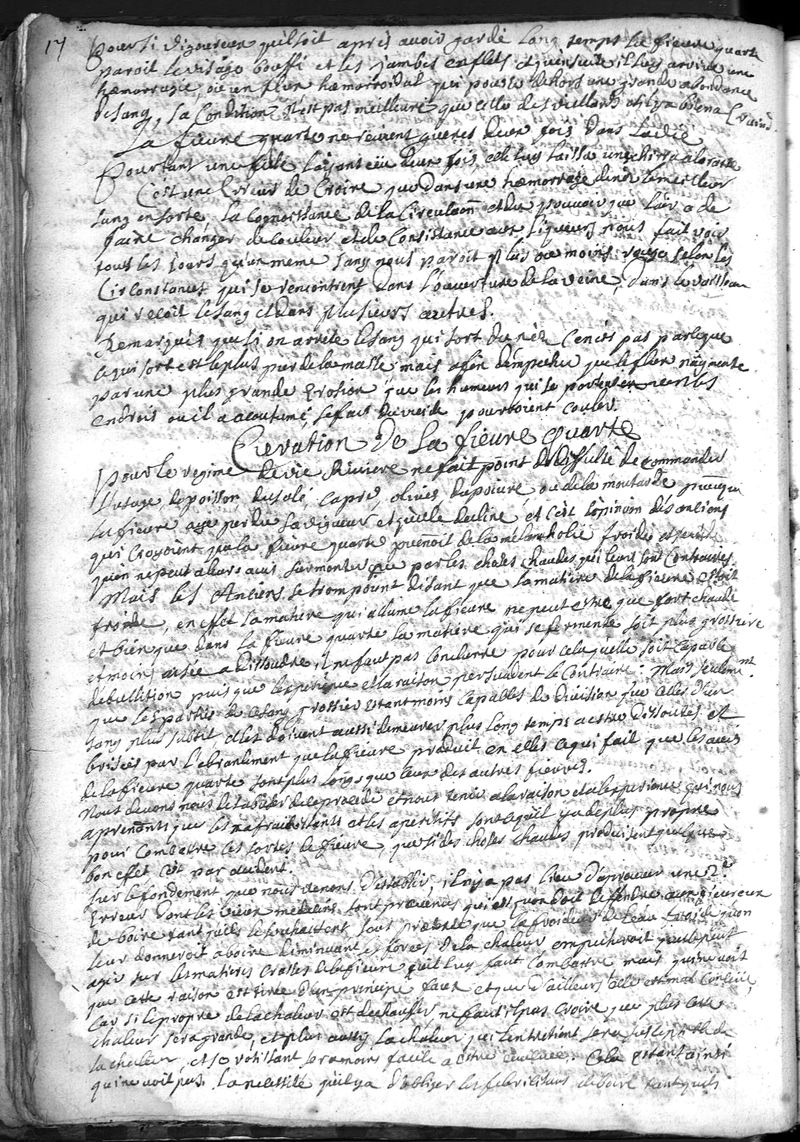 17
pour si vigoureux quil soit apres avoir gardé long temps la fieure quarte
paroit le visage bouffi et les jambes enflées et quensuite il luy arrive une
hœmorragie ou un flux hœmorroidal qui pousse dehors une grande abondance
de sang, sa condition n'est pas meilleure que celle des vieillards et il y a bien a craind.
La fieure quarte ne revient gueres deux fois dans la vie
Pourtant une fille layant eüe deux fois elle luy laissa un schirre a la rate
C'est une Erreur de Croire que dans une hœmorragie du nez le meilleur
sang en sorte la Cognoissance de la Circulaõn et du pouvoir que l'air a de
faire changer de couleur et de Consistance aux liqueurs nous fait voir
tous les jours qu'un meme sang nous paroit plus ou moins rouge selon les
Circonstances qui se rencontrent dans l'ouverture de la veine, dans le vaisseau
qui reçoit le sang et dans plusieurs autres.
Remarqués que si on arrete le sang qui sort du nez ce n'est pas parceque
ce qui sort est le plus pur de la masse mais afin d'empecher que le flux n'augmente
par une plus grande Erosion que les humeurs qui se portent vers les
endrois ou il a acoutumé, se fait du vuide pourroient couler.
Curation de la fieure quarte
Pour le regime de vie Riviere ne fait point de difficulté de commander
l'usage de poisson dusalé, capres, olives, du poivre, ou de la moutarde pourveu que
la fieure aye perdu sa vigueur et qu'elle decline, et c'est l'opinion des anciens
qui croyoient que la fieure quarte prenoit de la melancholie froide et
qu'on ne peut alors aussi surmonter que par les choses chaudes qui leurs sont contraires
Mais les Anciens se trompoint disant que la matiere de la fieure Etoit
froide, en effet la matiere qui allume la fieure ne peut estre que fort chaude
et bien que dans la fieure quarte la matiere qui se fermente soit plus grossiere
et moins aisée a dissoudre, il ne faut pas conclurre pour cela quelle soit capable
debullition puis que l'experience et la raison persuadent le contraire; Mais seulem.nt
que les parties de ce sang grossier estant moins capables de division que celles d'un
sang plus subtil elles doivent aussi demeurer plus long temps a estre dissoutes et
brisées par l'ebranlement que la fieure produit en elles ce qui fait que les accés
de la fieure quarte sont plus longs que ceux des autres fievres.
Nous devons nous de ce procedé et nous tenir a la raison et a l'experience qui nous
aprenent que les rafraichissants et les aperitifs sont ce quil y a de plus propre
pour combatre ces sortes de fieure, que si des choses chaudes produisent quelque
bon effet c'est par accident.
Sur le fondement que nous venons d'etablir, il n'y a pas lieu d'aprouver une 2.e
Erreur dont les vieux medecins sont prevenus qui est qu'on doit deffendre aux fievreux
de boire tant quils le souhaittent sous pretexte que la froideur de l'eau froide qu'on
leur donneroit a boire diminuant les forces de la chaleur empecheroit quelle peut
agir sur les matieres crasses de la fieure quil luy faut combatre mais qui ne voit
que cette raison est tirée d'un principe faux et que d'ailleurs elle est mal conclue,
Car si le propre de la chaleur est de echauffer ne faut il pas croire que plus cette
chaleur sera grande, et plus aussy la chaleur qui l'entretient sera susceptible de
la chaleur, et se rotissant sera moins facile a estre evacuée; Cela estant ainsi
qui ne voit pas la necessité quil y a d'obliger les febricitans de boire tant quils